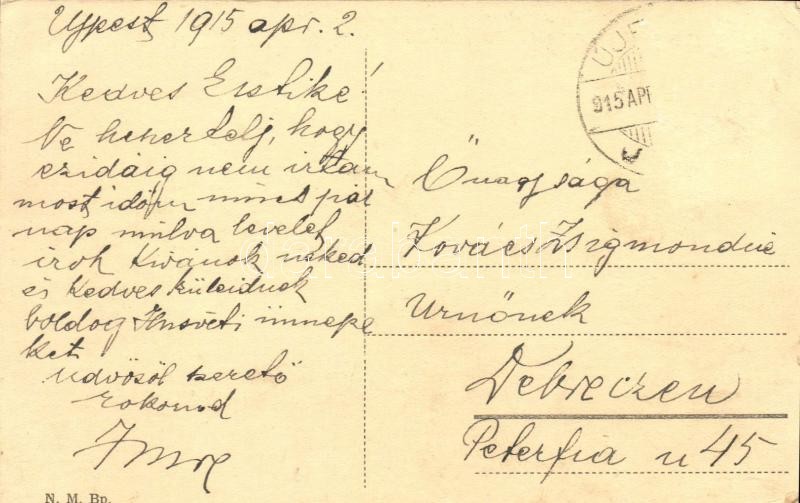 Ujpest, 1915 apr. 2.
Kedves Erstike!
Ne hehertelj, hogy
ezidáig nem irtam
most időm nincs pár
nap mulva levelet
irok Kivánok neked
és Kedves küleidnek
boldog Husvéti ünnepe
ket
üdvözöl szerető
rokonod
Imre
N. M. Bp.
ÚJP
915 APR
Őnagysága
Kovács Zsigmondné
Urnőnek
Debreczen
Péterfia u 45
darabanth